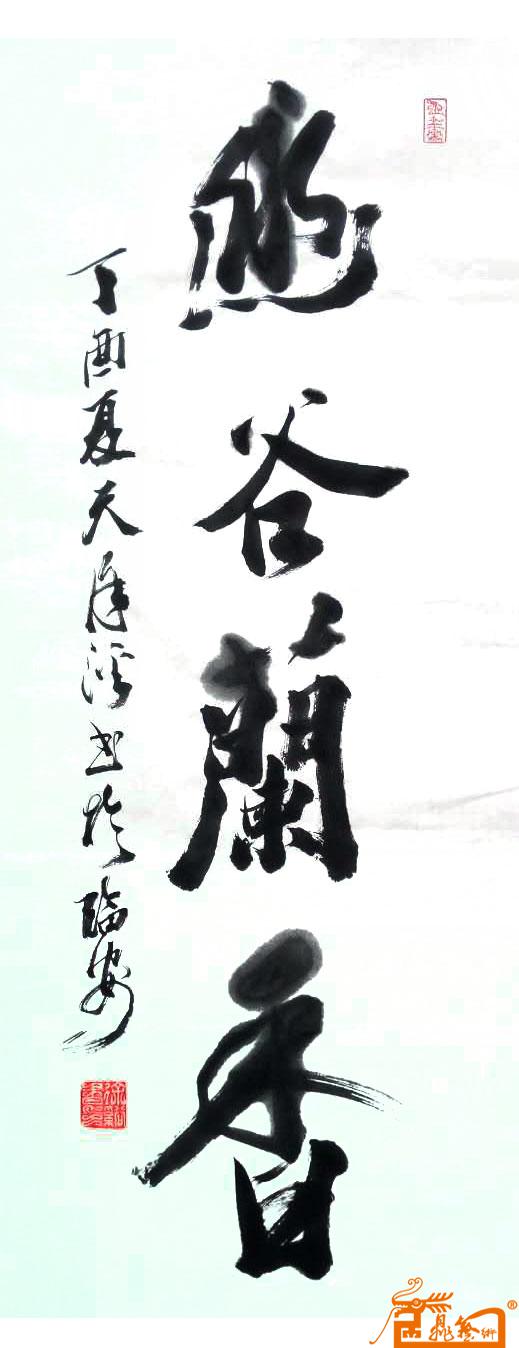 幽谷蘭香
丁酉夏天
书於临安